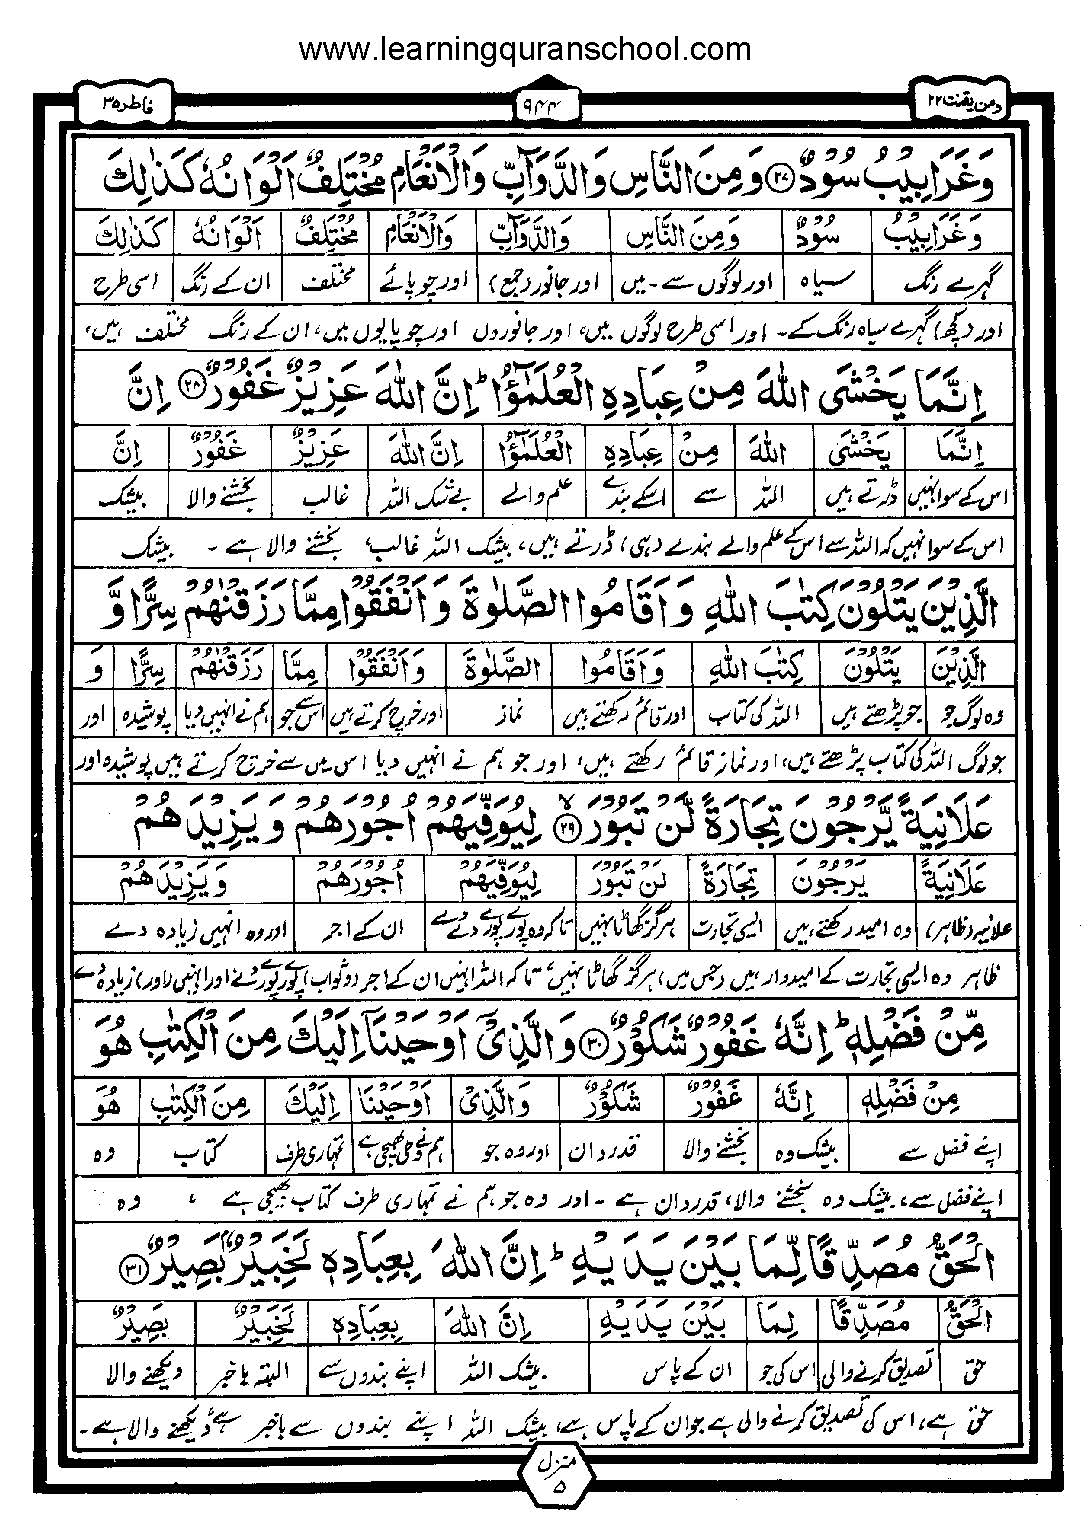 www.learningquranschool.com
ومن یقنت ۲۲
۹۴۴
فاطر ۳۵
وَغَرَابِيْبُ سُوْدٌ ۲۷ وَمِنَ النَّاسِ وَالدَّوَآبِّ وَالْاَنْعَامِ مُخْتَلِفٌ اَلْوَانُهٗ كَذٰلِكَ
وَغَرَابِيْبُ سُوْدٌ وَمِنَ النَّاسِ وَالدَّوَآبِّ وَالْاَنْعَامِ مُخْتَلِفٌ اَلْوَانُهٗ كَذٰلِكَ
گہرے رنگ سیاہ اور لوگوں سے۔میں اور جانور (جمع) اور چوپائے مختلف ان کے رنگ اسی طرح
اور (کچھ) گہرے سیاہ رنگ کے۔ اور اسی طرح لوگوں میں، اور جانوروں اور چوپایوں میں، ان کے رنگ مختلف ہیں،
اِنَّمَا يَخْشَى اللّٰهَ مِنْ عِبَادِهِ الْعُلَمٰٓؤُا ؕ اِنَّ اللّٰهَ عَزِيْزٌ غَفُوْرٌ ۲۸ اِنَّ
اِنَّمَا يَخْشَى اللّٰهَ مِنْ عِبَادِهِ الْعُلَمٰٓؤُا اِنَّ اللّٰهَ عَزِيْزٌ غَفُوْرٌ اِنَّ
اس کے سوا نہیں ڈرتے ہیں اللہ سے اسکے بندے علم والے بے شک اللہ غالب بخشنے والا بیشک
اس کے سوا نہیں کہ اللہ سے اس کے علم والے بندے (ہی) ڈرتے ہیں، بیشک اللہ غالب، بخشنے والا ہے ۔ بیشک
الَّذِيْنَ يَتْلُوْنَ كِتٰبَ اللّٰهِ وَاَقَامُوا الصَّلٰوةَ وَاَنْفَقُوْا مِمَّا رَزَقْنٰهُمْ سِرًّا وَّ
الَّذِيْنَ يَتْلُوْنَ كِتٰبَ اللّٰهِ وَاَقَامُوا الصَّلٰوةَ وَاَنْفَقُوْا مِمَّا رَزَقْنٰهُمْ سِرًّا وَ
وہ لوگ جو جو پڑھتے ہیں اللہ کی کتاب اور قائم رکھتے ہیں نماز اور خرچ کرتے ہیں اس سے جو ہم نے انہیں دیا پوشیدہ اور
جو لوگ اللہ کی کتاب پڑھتے ہیں، اور نماز قائم رکھتے ہیں، اور جو ہم نے انہیں دیا اس میں سے خرچ کرتے ہیں پوشیدہ اور
عَلَانِيَةً يَّرْجُوْنَ تِجَارَةً لَّنْ تَبُوْرَ ۲۹ لِيُوَفِّيَهُمْ اُجُوْرَهُمْ وَيَزِيْدَهُمْ
عَلَانِيَةً يَرْجُوْنَ تِجَارَةً لَنْ تَبُوْرَ لِيُوَفِّيَهُمْ اُجُوْرَهُمْ وَيَزِيْدَهُمْ
علانیہ (ظاہر) وہ امید رکھتے ہیں ایسی تجارت ہرگز گھاٹا نہیں تاکہ وہ پورے پورے دے ان کے اجر اور وہ انہیں زیادہ دے
ظاہر وہ ایسی تجارت کے امیدوار ہیں (جس میں) ہرگز گھاٹا نہیں، تاکہ اللہ انہیں ان کے اجر (و ثواب) پورے پورے دے اور انہیں (اور) زیادہ دے
مِّنْ فَضْلِهٖ ؕ اِنَّهٗ غَفُوْرٌ شَكُوْرٌ ۳۰ وَالَّذِيْٓ اَوْحَيْنَآ اِلَيْكَ مِنَ الْكِتٰبِ هُوَ
مِنْ فَضْلِهٖ اِنَّهٗ غَفُوْرٌ شَكُوْرٌ وَالَّذِيْٓ اَوْحَيْنَآ اِلَيْكَ مِنَ الْكِتٰبِ هُوَ
اپنے فضل سے بیشک وہ بخشنے والا قدر دان اور وہ جو ہم نے وحی بھیجی ہے تمہاری طرف کتاب وہ
اپنے فضل سے، بیشک وہ بخشنے والا، قدر دان ہے ۔ اور وہ جو ہم نے تمہاری طرف کتاب بھیجی ہے ، وہ
الْحَقُّ مُصَدِّقًا لِّمَا بَيْنَ يَدَيْهِ ؕ اِنَّ اللّٰهَ بِعِبَادِهٖ لَخَبِيْرٌۢ بَصِيْرٌ ۳۱
الْحَقُّ مُصَدِّقًا لِمَا بَيْنَ يَدَيْهِ اِنَّ اللّٰهَ بِعِبَادِهٖ لَخَبِيْرٌ بَصِيْرٌ
حق تصدیق کرنے والی اس کی جو ان کے پاس بیشک اللہ اپنے بندوں سے البتہ باخبر دیکھنے والا
حق ہے، اس کی تصدیق کرنے والی ہے جو ان کے پاس ہے، بیشک اللہ اپنے بندوں سے باخبر ہے دیکھنے والا ہے۔
منزل ۵